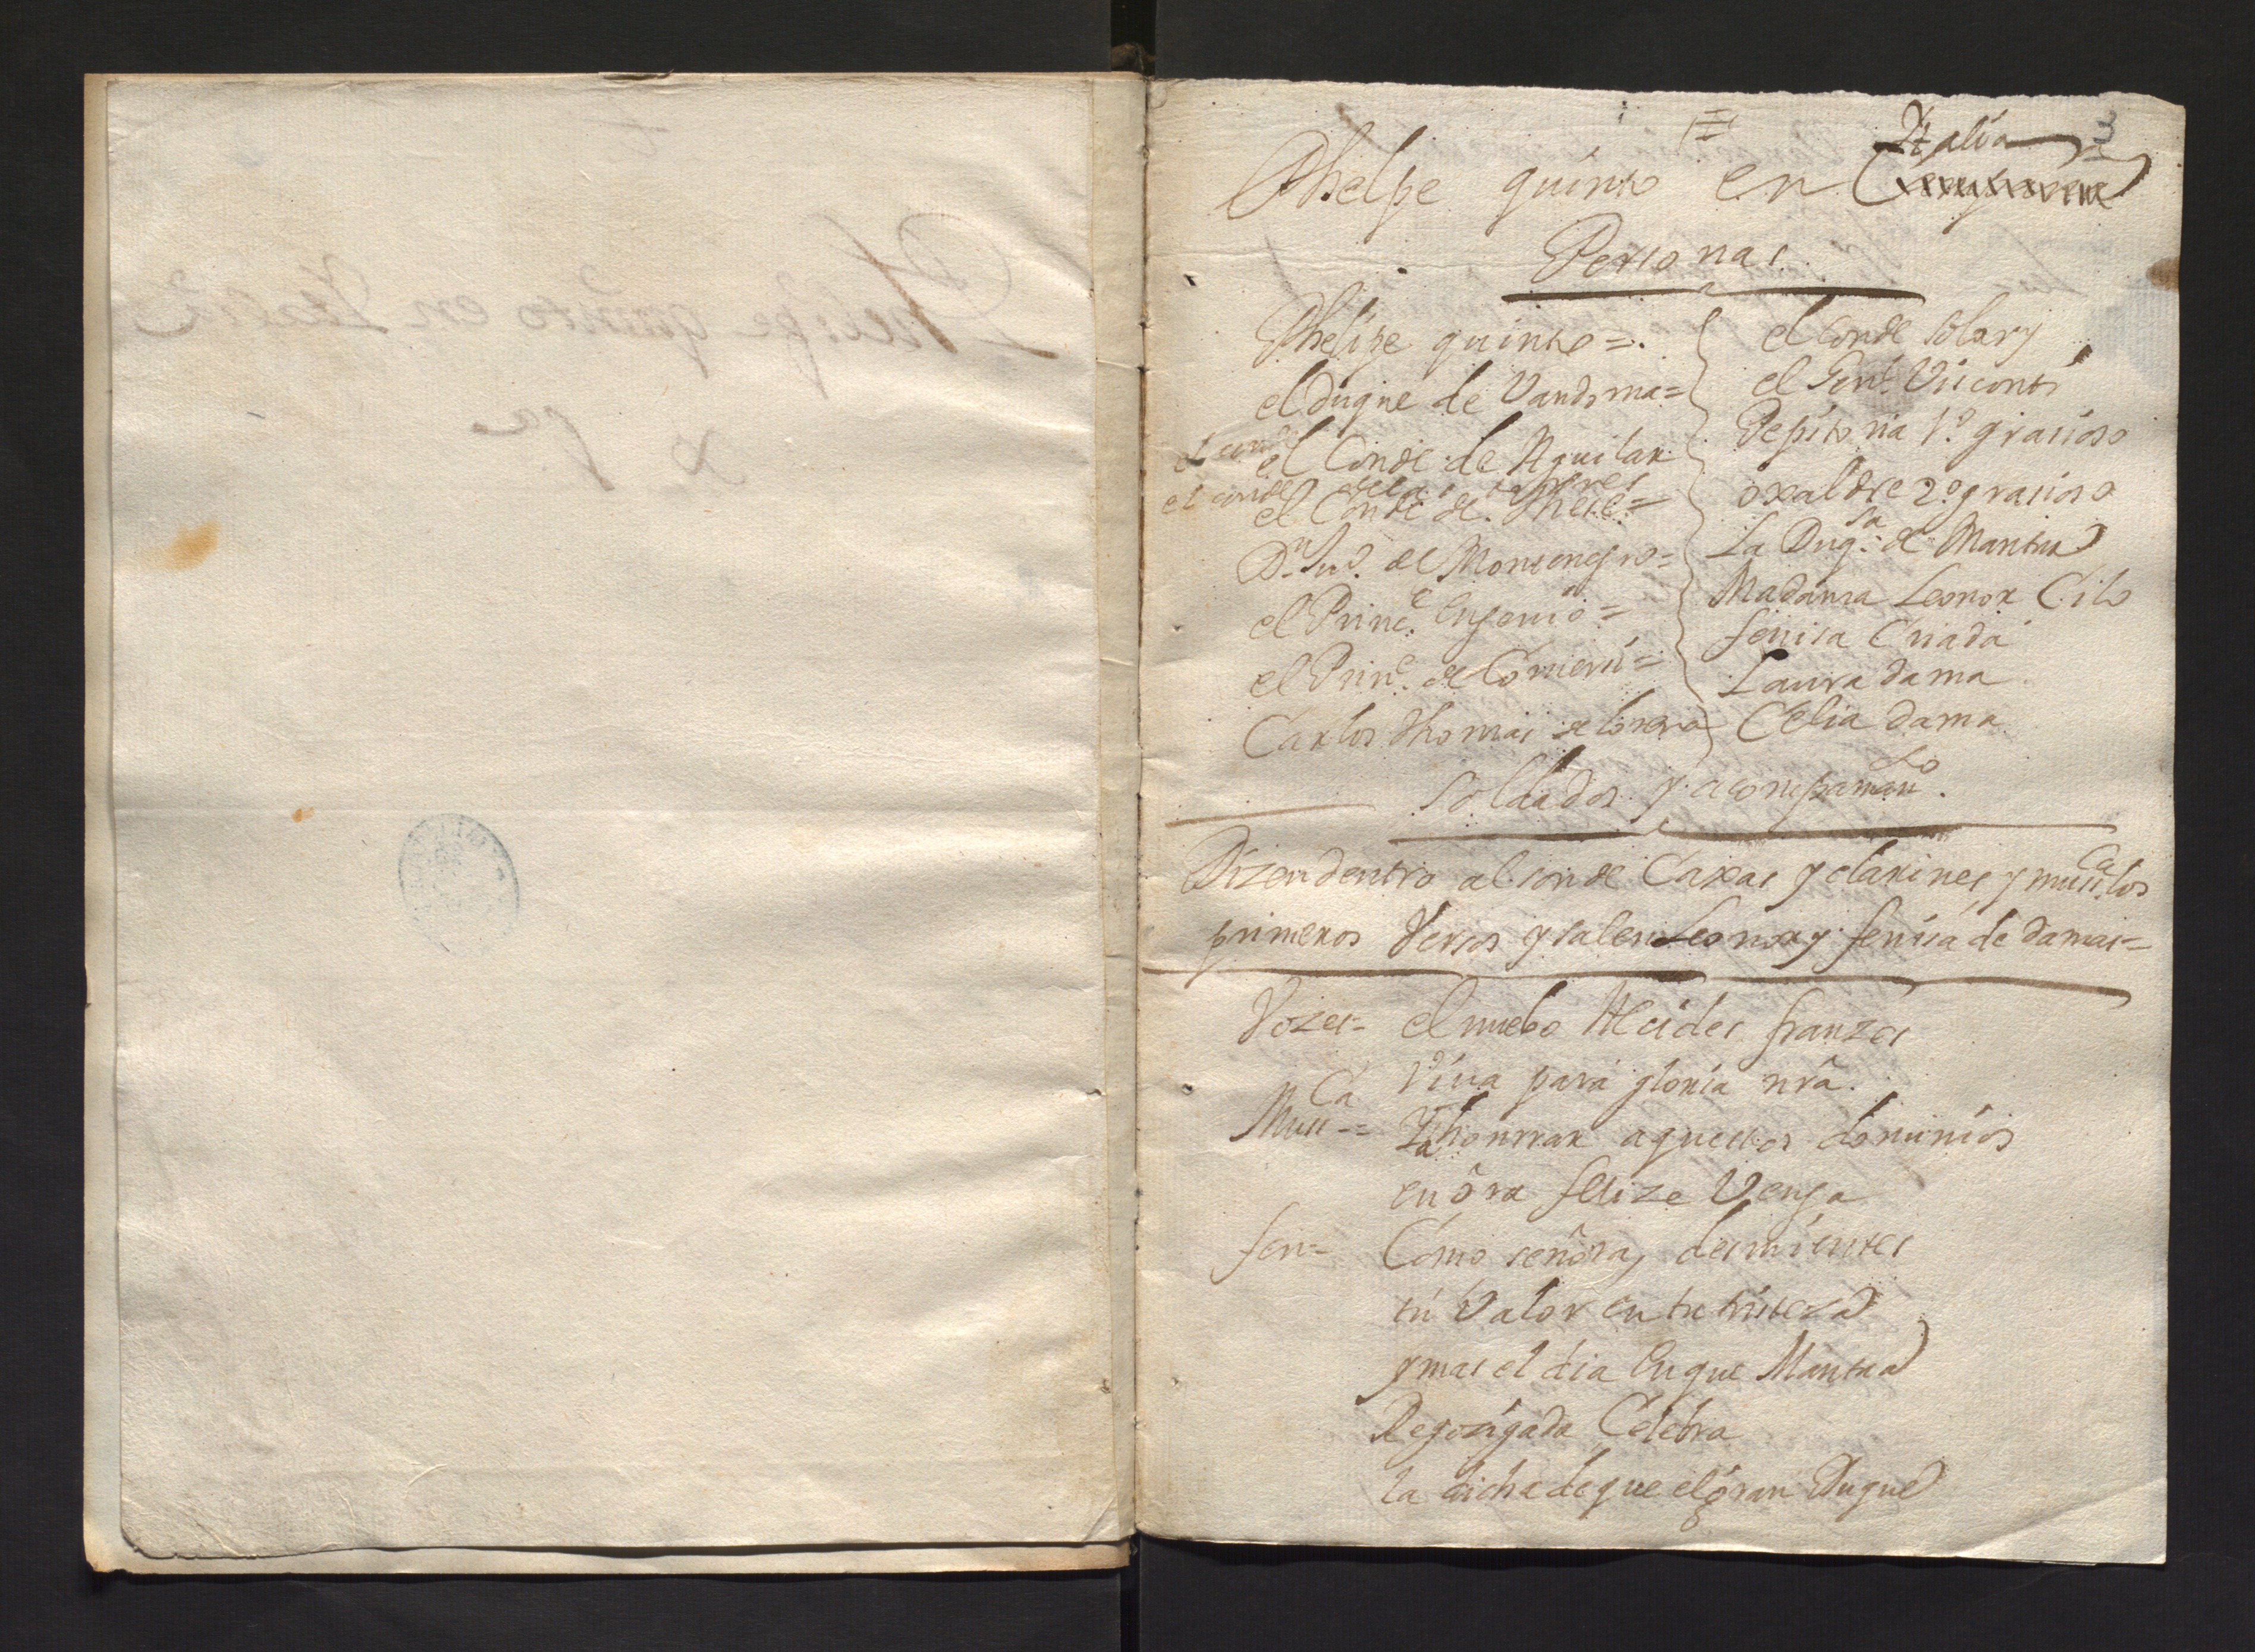 Phelpe quinto en Italia
Personas
Phelipe quinto =
el Duque de Vandoma =
el Conde de Aguilar
el conde de las torres
el Conde de These =
Dn Ju.º de Montenegro =
el Princ.e Eugenio =
el Prin.e de Comersi =
Carlos thomas de lorena
el Conde Solary
el Gen.l Visconti
Pepitoria 1.º grasioso
oxaldre 2.º grasioso
La Duq.sa de Mantua
Madama Leonor Cibo
fenisa Criada
Laura dama
Celia dama
Soldados y acompañam.to
Dizen dentro al son de Caxas y clarines y mussi.ca los
primeros Versos y salen Leonor y fenisa de damas =
Vozes = el nuebo Alcides franzes
viva para gloria nrã.
Mussi.ca = Y a honrrar aquestos dominios
en ora felize Venga
fen = Como señora, desmientes
tu Valor en tu tristeza
y mas el dia en que Mantua
Regozigada Celebra
la dicha de que el gran Duque
Phelipe quinto en Italia